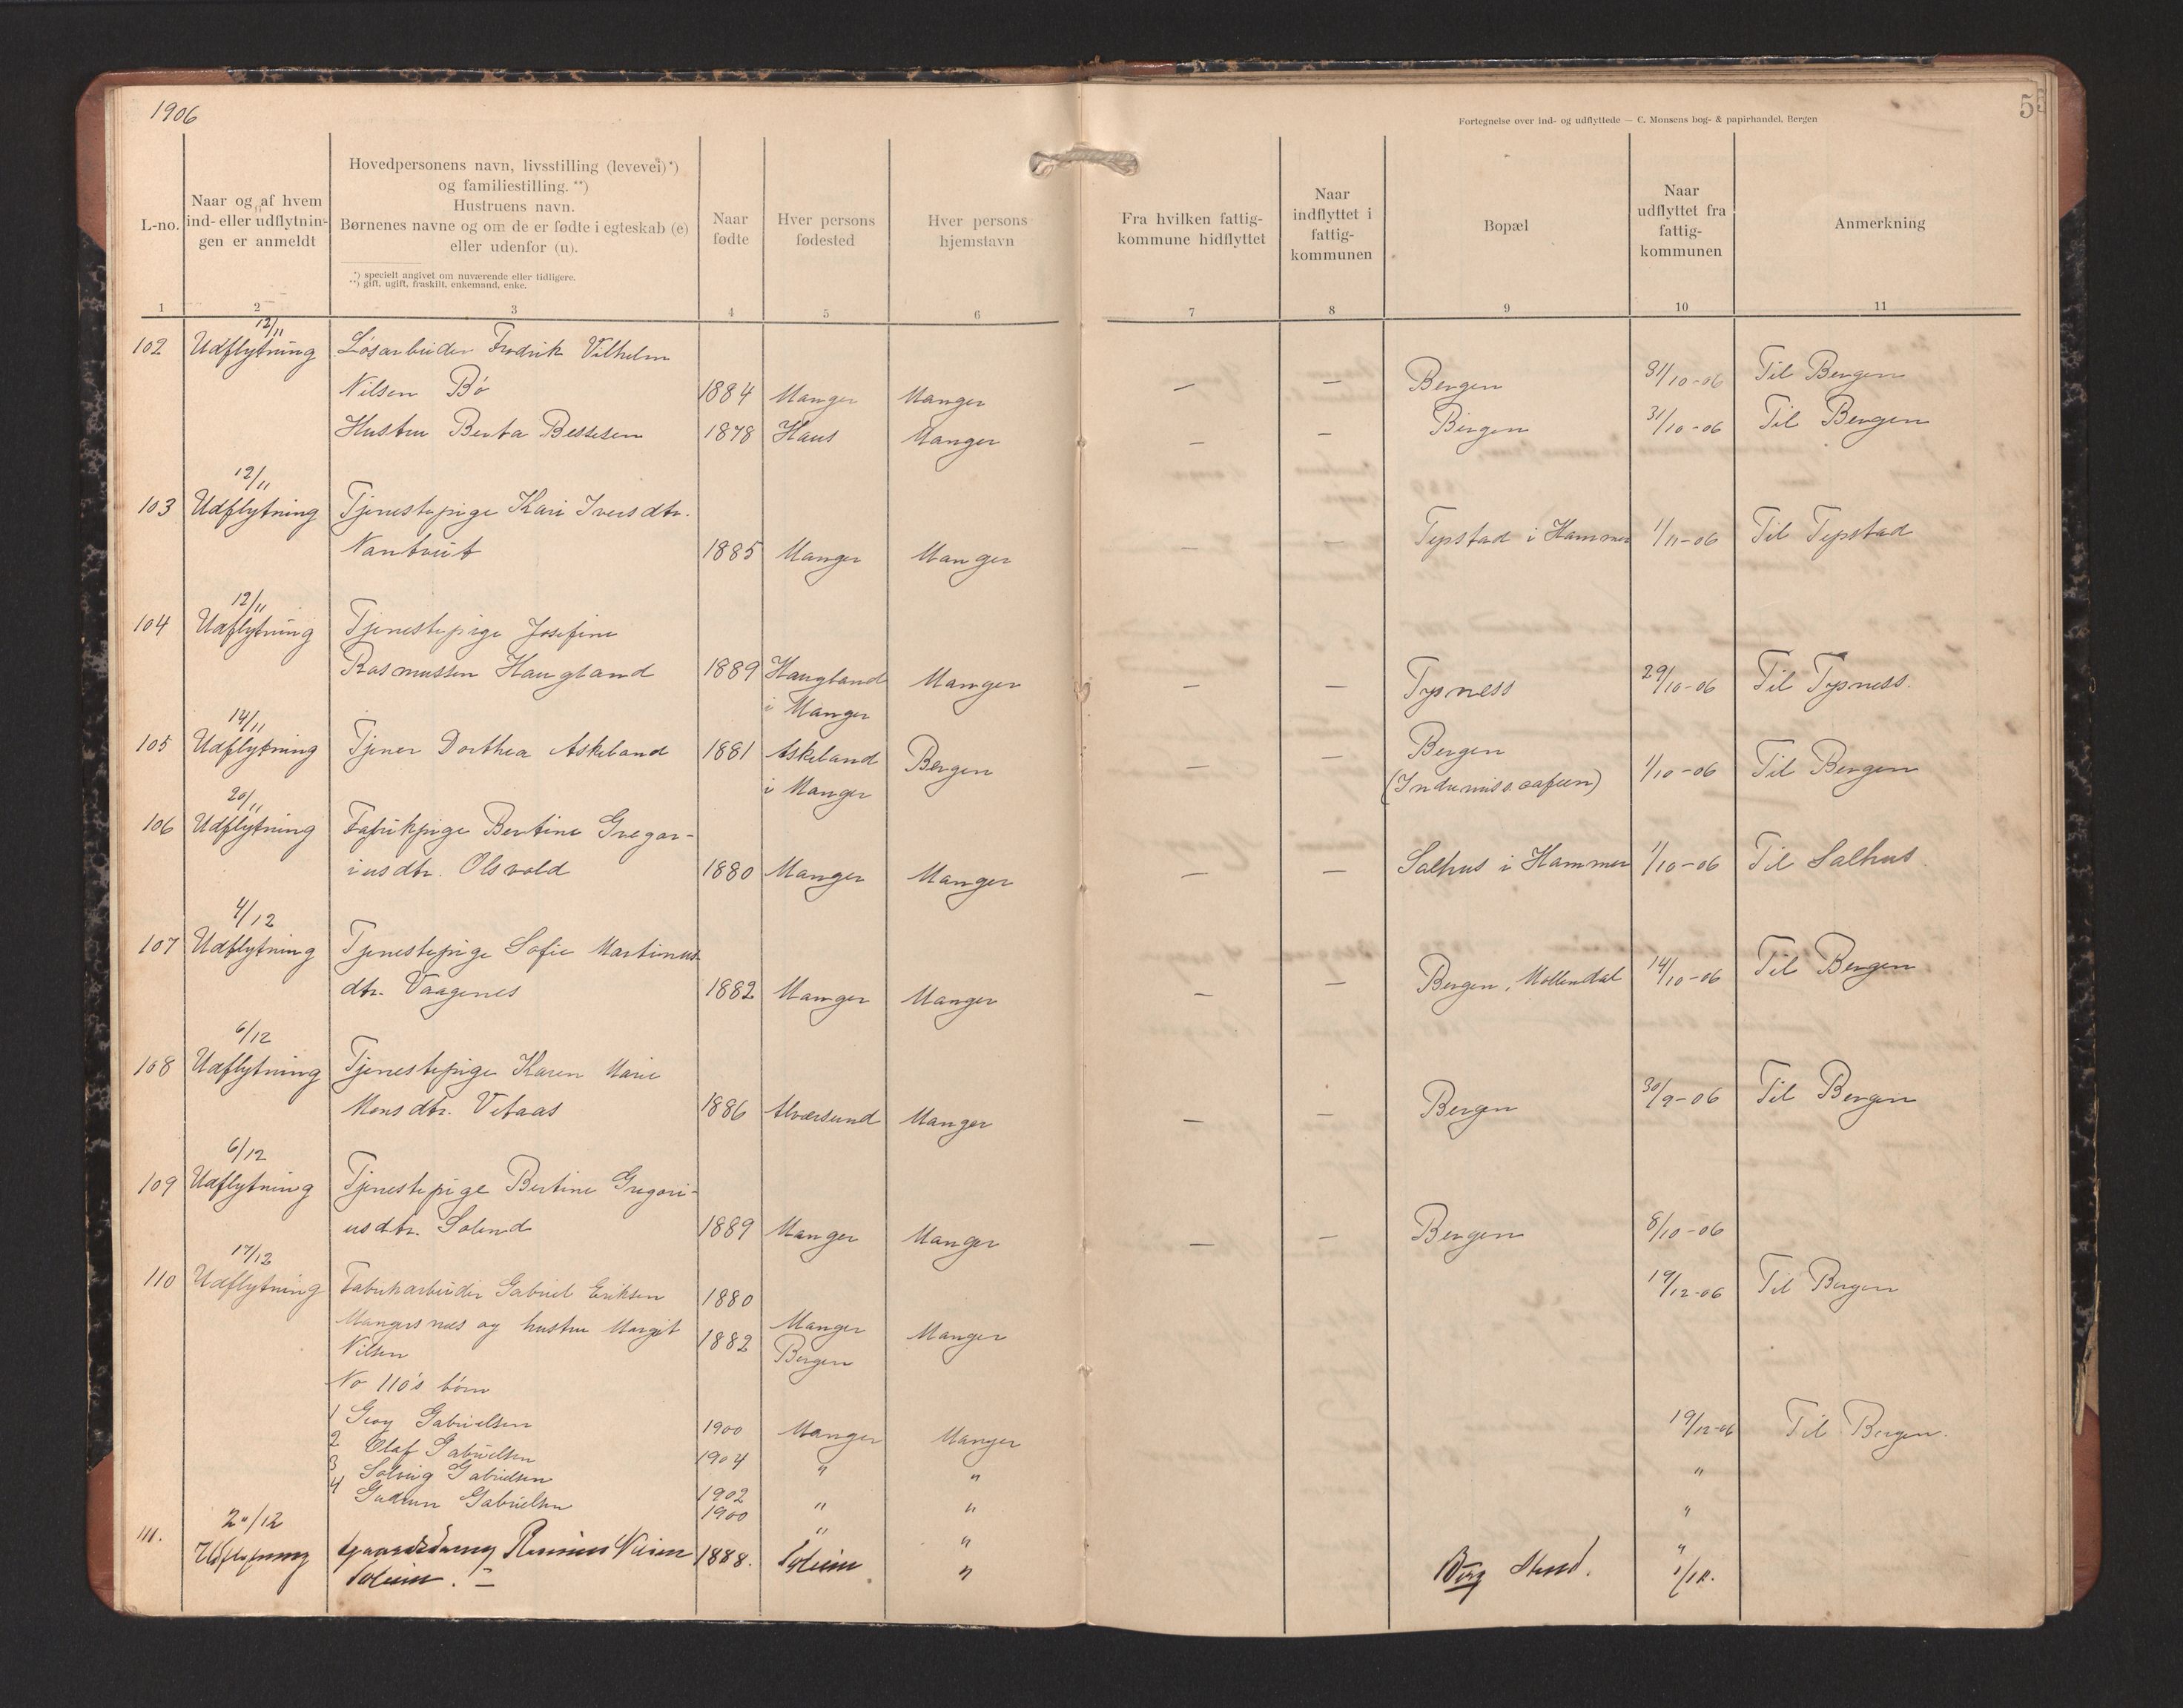 1906
55
Fortegnelse over ind- og udflyttede — C. Monsens bog- & papirhandel, Bergen
L-no.
Naar og af hvem ind- eller udflytnin- gen er anmeldt
Hovedpersonens navn, livsstilling (levevei)*)
og familiestilling. **)
Hustruens navn.
Børnenes navne og om de er fødte i egteskab (e)
eller udenfor (u).
*) specielt angivet om nuværende eller tidligere.
**) gift, ugift, fraskilt, enkemand, enke.
Naar fødte
Hver persons fødested
Hver persons hjemstavn
Fra hvilken fattig- kommune hidflyttet
Naar indflyttet i fattig- kommunen
Bopæl
Naar udflyttet fra fattig- kommunen
Anmerkning
1 2 3 4 5 6 7 8 9 10 11
12/11
102 Udflytning Løsarbeider Fredrik Vilhelm
Nilsen Bö 1884 Manger Manger — — Bergen 31/10-06 Til Bergen
Hustru Berta Bessesen 1878 Haus Manger — — Bergen 31/10-06 Til Bergen
12/11
103 Udflytning Tjenestepige Kari Iversdtr.
1885 Manger Manger — — Tepstad i Hammer 1/11-06 Til Tepstad
12/11
104 Udflytning Tjenestepige Josefine
Rasmussen Haugland 1889 Haugland Manger — — Typness 29/10-06 Til Typness.
i Manger
14/11
105 Udflytning Tjener Dorthea Askeland 1881 Askeland Bergen — — Bergen 1/10-06 Til Bergen
i Manger (Indremiss. cafeen)
20/11
106 Udflytning Fabrikpige Bertine Gregor-
iusdtr. Olsvold 1880 Manger Manger — — Salhus i Hammer 1/10-06 Til Salhus
4/12
107 Udflytning Tjenestepige Sofie Martinus
dtr. Vaagenes 1882 Manger Manger — — Bergen, Møllendal 14/10-06 Til Bergen
6/12
108 Udflytning Tjenestepige Karen Marie
Monsdtr. Vetaas 1886 Alværsund Manger — — Bergen 30/9-06 Til Bergen
6/12
109 Udflytning Tjenestepige Bertine Gregori-
usdtr. Solend 1889 Manger Manger — — Bergen 8/10-06
17/12
110 Udflytning Fabrikarbeider Gabriel Eriksen 1880 19/12-06 Til Bergen
Mangersnes og hustru Margit 1882 Manger Manger
Nilsen Bergen
No 110's børn
1 Georg Gabrielsen 1900 Manger Manger 19/12-06 Til Bergen.
2 Olaf Gabrielsen 1904 " " "
3 Solveig Gabrielsen 1902 " " "
4 Gudrun Gabrielsen 1900 " " "
20/12
111. Udflytning Rasmus 1888. Soleim " 1/12.
Soleim. —